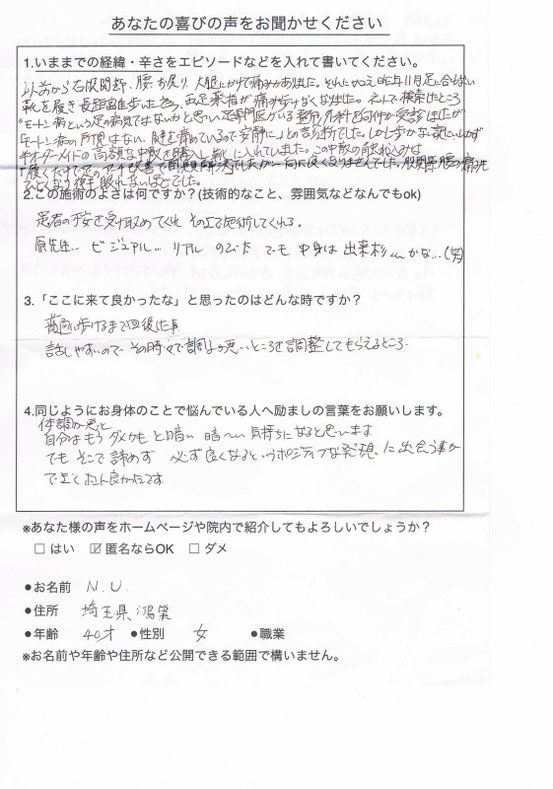 あなたの喜びの声をお聞かせください
1.いままでの経緯・辛さをエピソードなどを入れて書いてください。
以前から右股関節、腰、お尻り、大腿にかけて痛みがありました。それに加え昨年11月足に合わない
靴を履き長距離歩いた為、両足薬指が痛み歩けなくなりました。ネットで検索したところ
"モートン病という足の病気ではないかと思い足専門医がいる整形外科を何件か受診しましたが
「モートン病の所見はない。腱を痛めているので安静に」との診断でした。しかし歩かない訳にいかず
オーダーメイドの高額な中敷を購入し靴に入れていました。この中敷の
2.この施術のよさは何ですか？(技術的なこと、雰囲気などなんでもok)
患者の不安を受け取めてくれ その上で施術してくれる。
原先生… ビジュアル… リアル のび太 でも 中身は 出来杉くんかな…(笑)
3.「ここに来て良かったな」と思ったのはどんな時ですか？
普通に歩けるまで回復した事
話しやすいので その時々で調子が悪いところを調整してもらえるところ.
4.同じようにお身体のことで悩んでいる人へ励ましの言葉をお願いします。
体調が悪いと
自分はもうダメかも と暗い 暗〜い 気持ちになると思います
でも そこで 諦めず 必ず良くなるというポジティブな発想 に出会う事が
できて ホント良かったです
※あなた様の声をホームページや院内で紹介してもよろしいでしょうか？
□ はい ☑ 匿名ならOK □ ダメ
●お名前 N.U.
●住所 埼玉県鴻巣
●年齢 40才 ●性別 女 ●職業
※お名前や年齢や住所など公開できる範囲で構いません。